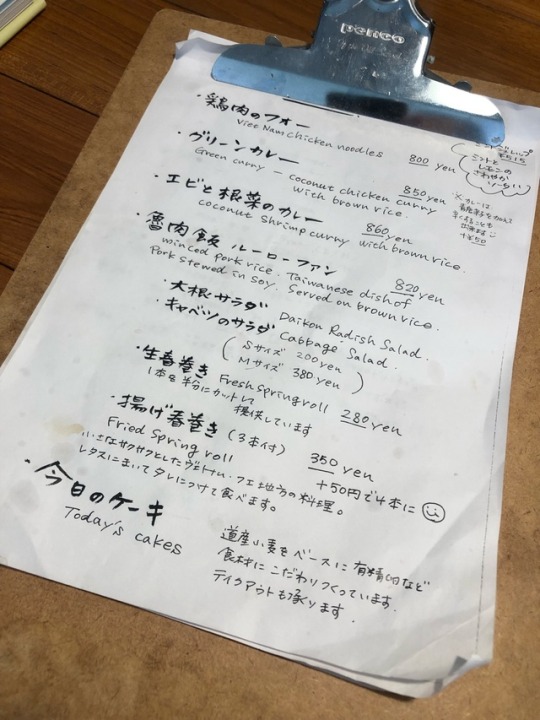 penco
・鶏肉のフォー
Viet Nam chicken noodles 800 yen
・グリーンカレー
Green curry – coconut chicken curry 850 yen
with brown rice.
・エビと根菜のカレー 860 yen
coconut shrimp curry with brown rice.
・魯肉飯 ルーローファン 820 yen
minced pork rice. Taiwanese dish of
Pork stewed in soy. Served on brown rice.
・大根サラダ Daikon Radish Salad.
・キャベツのサラダ Cabbage Salad.
(Sサイズ 200 yen
Mサイズ 380 yen)
・生春巻き Fresh spring roll 280 yen
1本を半分にカットして
提供しています
・揚げ春巻き (3本付) 350 yen
Fried Spring roll +50円で4本に
小さなサクサクとしたヴェトナム・フエ地方の料理。
レタスにまいてタレにつけて食べます。
・今日のケーキ
Today's cakes
道産小麦をベースに有精卵など
食材にこだわりつくっています.
テイクアウトも承ります.
ミントと
レモンの
さわやか
※カレーは
+¥50